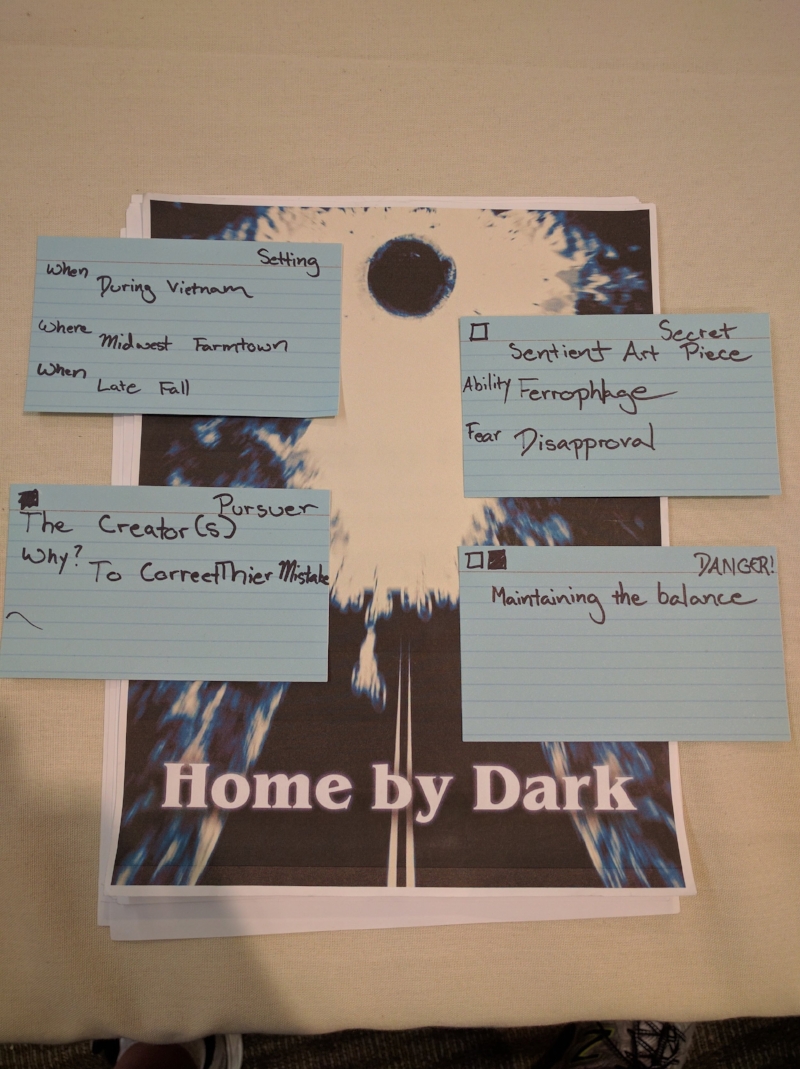 Setting
When
During Vietnam
Where
Midwest Farmtown
When
Late Fall
Secret
Sentient Art Piece
Ability Ferrophage
Fear Disapproval
Pursuer
The Creator(s)
Why? To Correct Thier Mistake
DANGER!
Maintaining the balance
Home by Dark